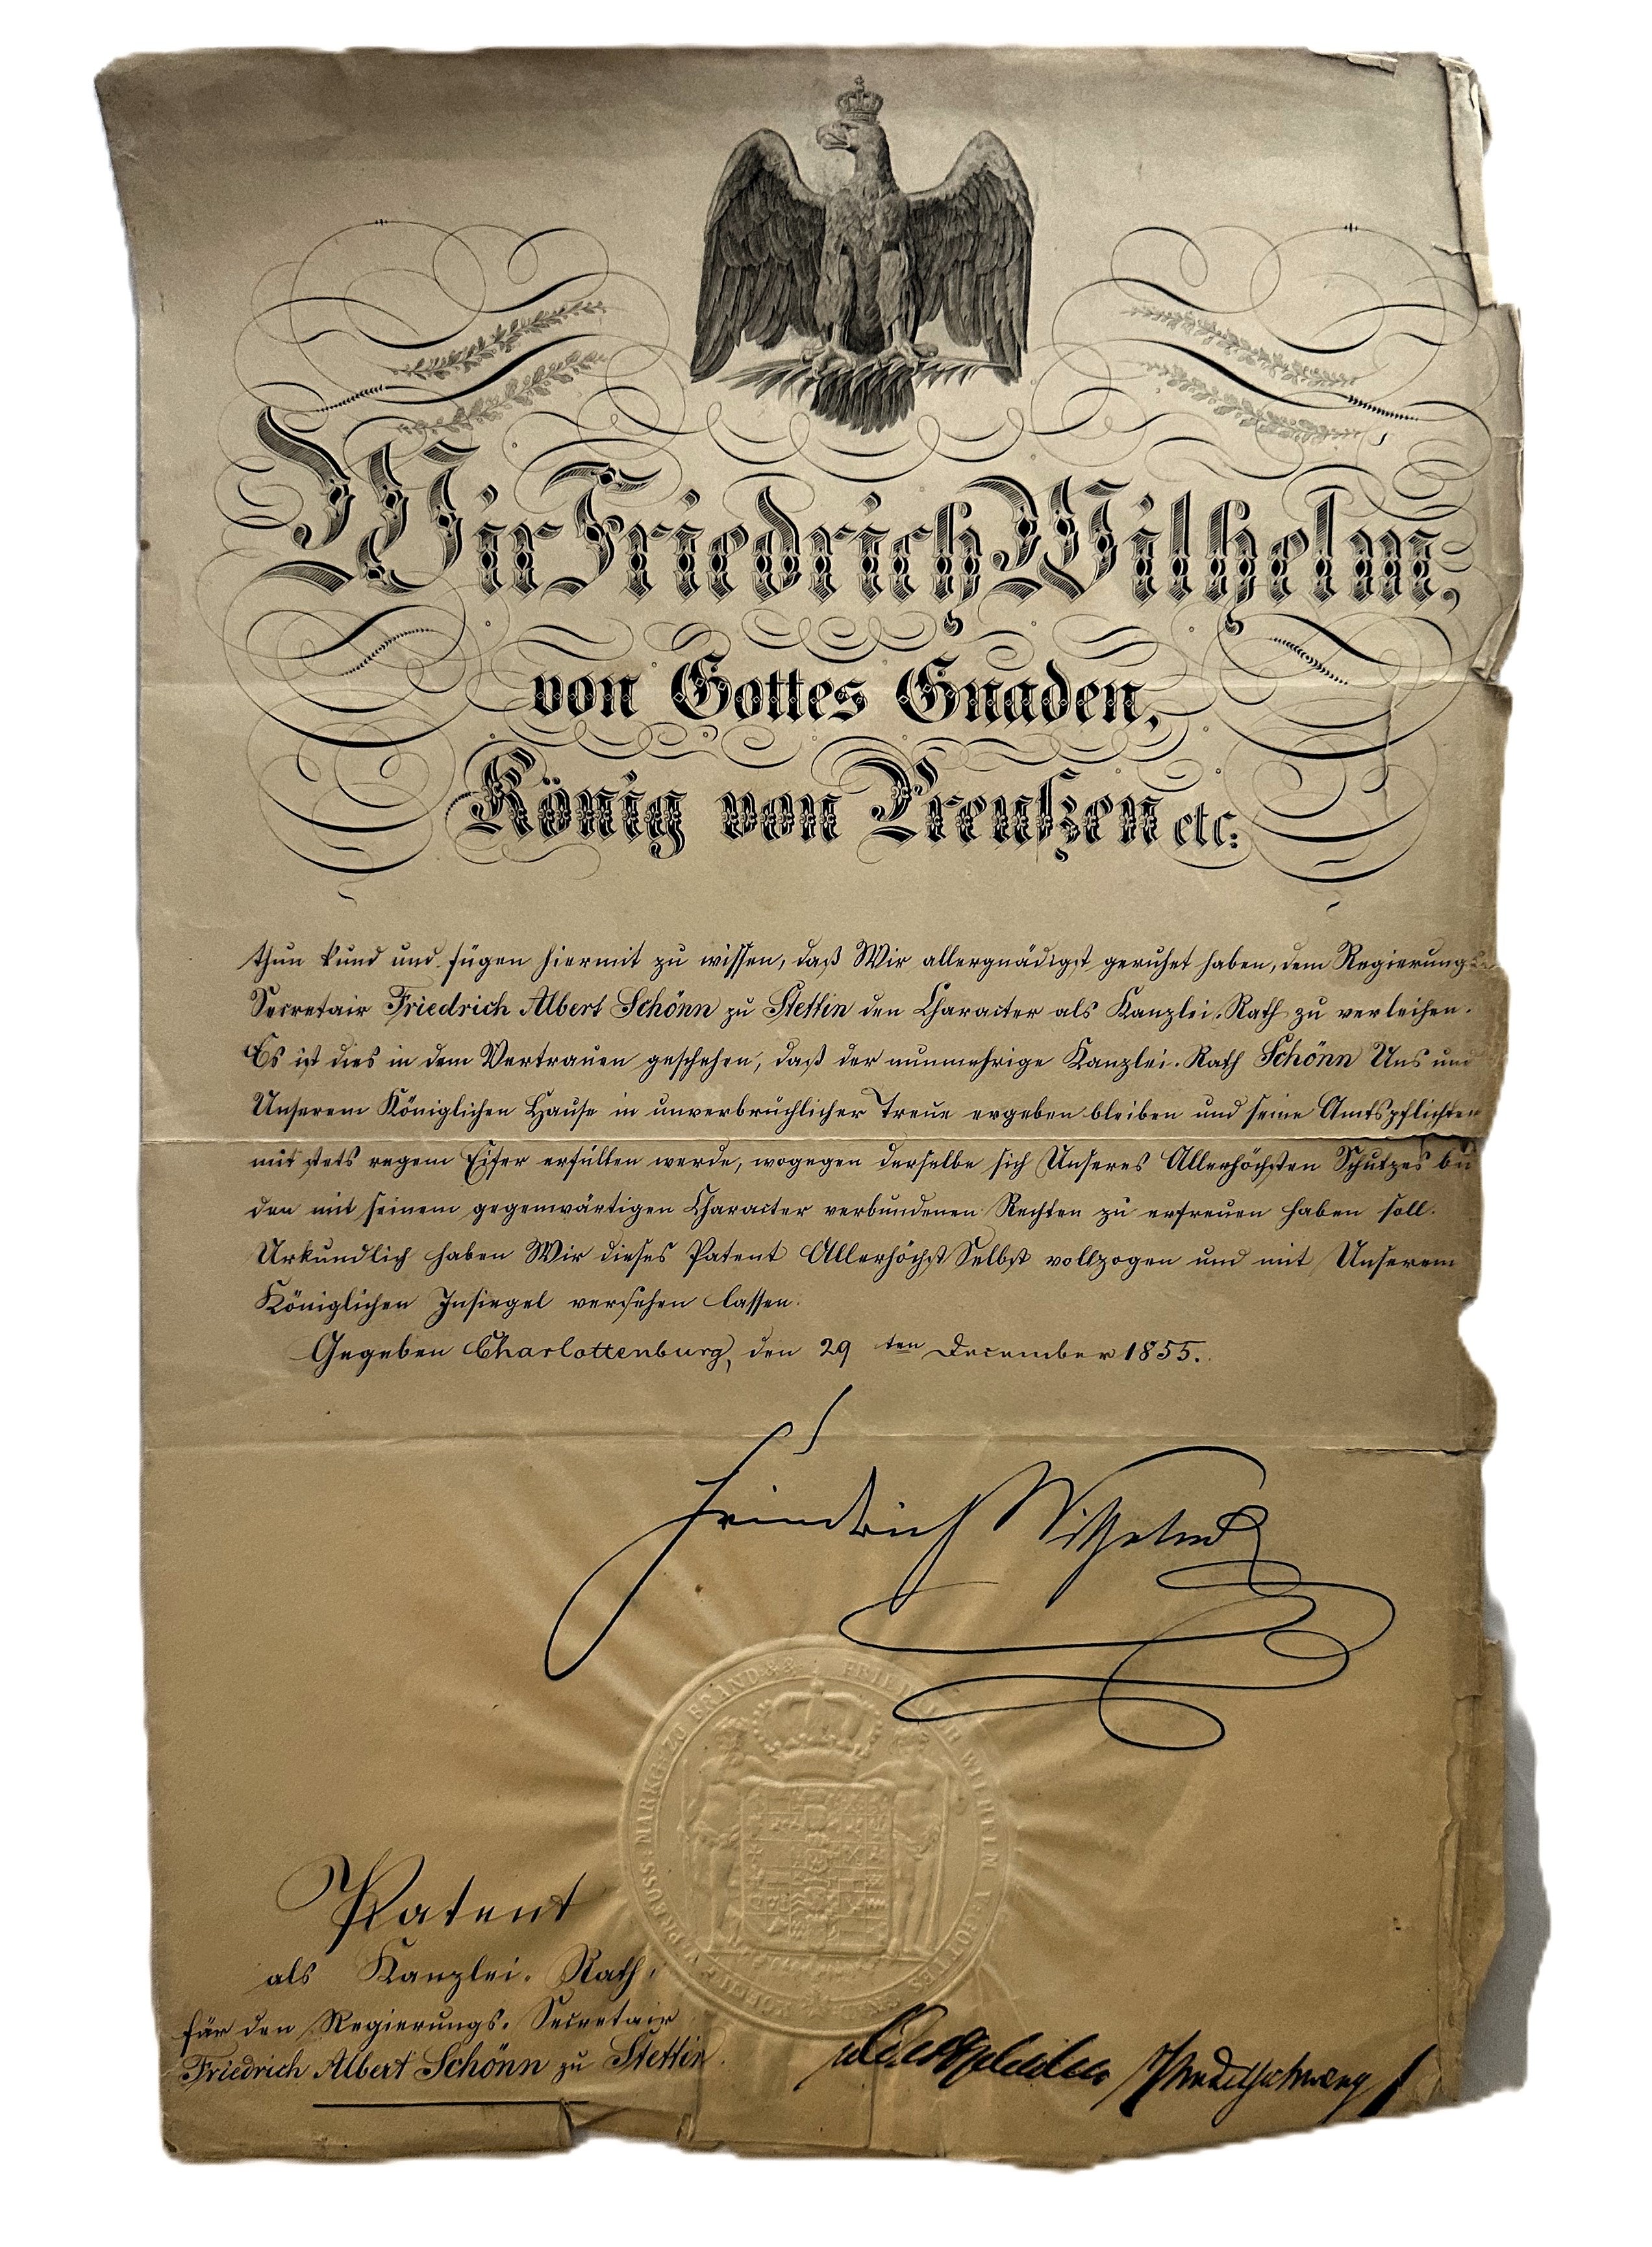 Wir Friedrich Wilhelm,
von Gottes Gnaden,
König von Preußen etc:
thun kund und fügen hiermit zu wissen, daß Wir allergnädigst geruhet haben, dem Regierungs-
Secretair Friedrich Albert Schönn zu Stettin den Character als Kanzlei-Rath zu verleihen.
Es ist dies in dem Vertrauen geschehen, daß der nunmehrige Kanzlei-Rath Schönn Uns und
Unserem Königlichen Hause in unverbrüchlicher Treue ergeben bleiben und seine Amtspflichten
mit stets regem Eifer erfüllen werde, wogegen derselbe sich Unseres Allerhöchsten Schutzes bei
den mit seinem gegenwärtigen Character verbundenen Rechten zu erfreuen haben soll.
Urkundlich haben Wir dieses Patent Allerhöchst Selbst vollzogen und mit Unserem
Königlichen Insiegel versehen lassen.
Gegeben Charlottenburg, den 29ten December 1855.
Friedrich Wilhelm
FRIEDRICH WILHELM IV GOTTES KOENIG V. PREUSS. MARKG. ZU BRAND.
Patent
als Kanzlei-Rath
für den Regierungs-Secretair
Friedrich Albert Schönn zu Stettin.